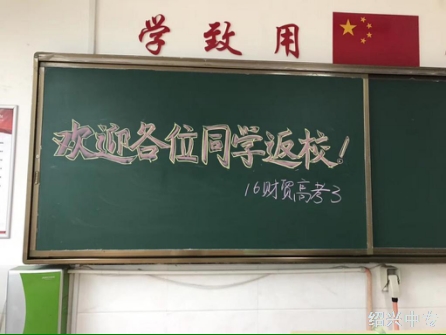 学致用
欢迎各位同学返校!
16财贸高考3